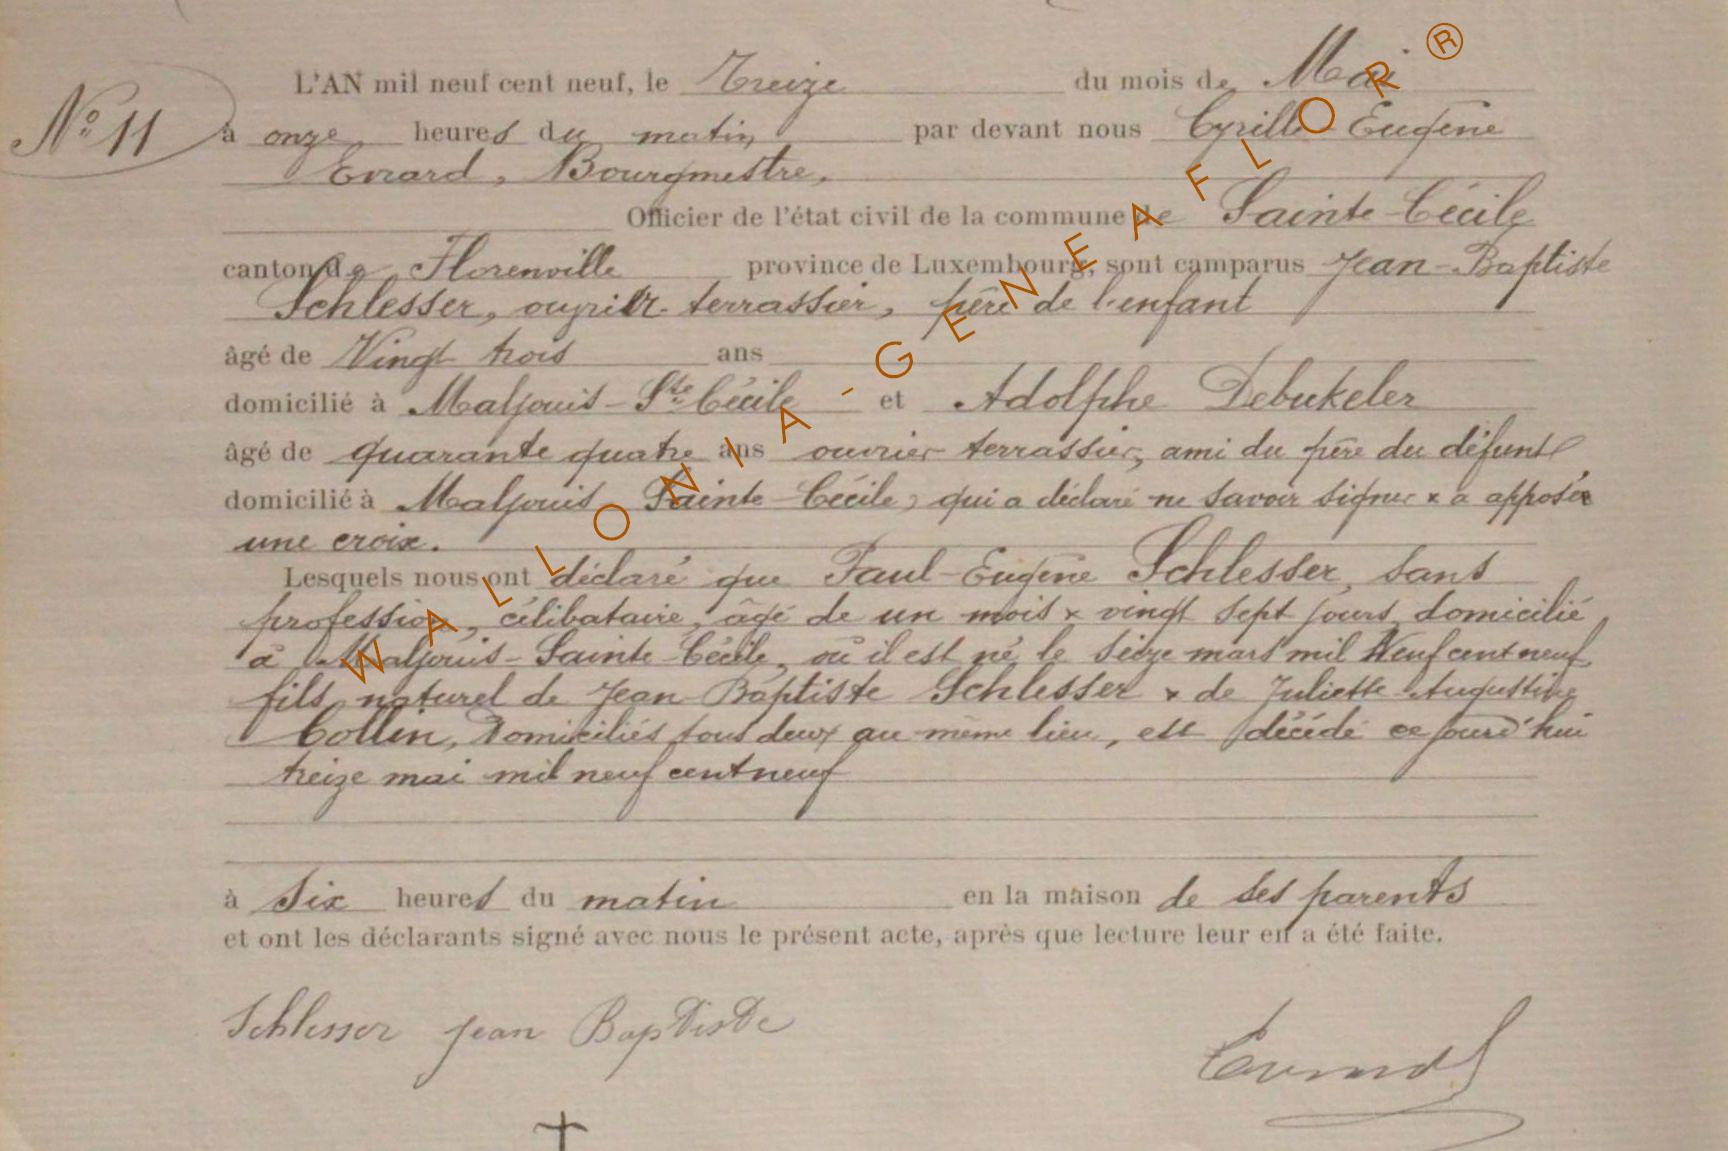 L'AN mil neuf cent neuf, le Treize du mois de Mai
N° 11
à onze heures du matin par devant nous Cyrille Eugène
Evrard, Bourgmestre,
Officier de l'état civil de la commune de Sainte-Cécile
canton de Florenville province de Luxembourg, sont camparus Jean-Baptiste
Schlesser, ouvrier terrassier, père de l'enfant
âgé de Vingt trois ans
domicilié à Maljouis-Ste Cécile et Adolphe Debukeler
âgé de quarante quatre ans ouvrier terrassier, ami du père du défunt
domicilié à Maljouis Sainte-Cécile, qui a déclaré ne savoir signer & a apposé
une croix.
Lesquels nous ont déclaré que Paul-Eugène Schlesser, sans
profession, célibataire, âgé de un mois & vingt sept jours, domicilié
à Maljouis-Sainte-Cécile, où il est né le seize mars mil Neuf cent neuf,
fils naturel de Jean-Baptiste Schlesser & de Juliette Augustine
Collin, Domiciliés tous deux au même lieu, est décédé ce jourd'hui
treize mai mil neuf cent neuf
à six heures du matin en la maison de ses parents
et ont les déclarants signé avec nous le présent acte, après que lecture leur en a été faite.
Schlesser Jean Baptiste
Evrard
WALLONIA-GENEAFLOR®